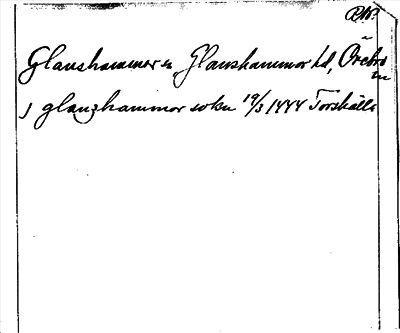 RAP.
Glanshammer sn, Glanshammar hd, Örebro
län
J glanzhammor sokn 19/3 1444 Torshälla